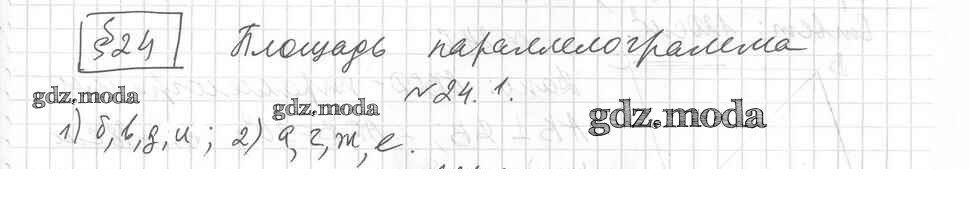 §24 Площадь параллелограмма
№24.1.
gdz.moda
gdz.moda
gdz.moda
1) б, в, д, и; 2) а, г, ж, е.